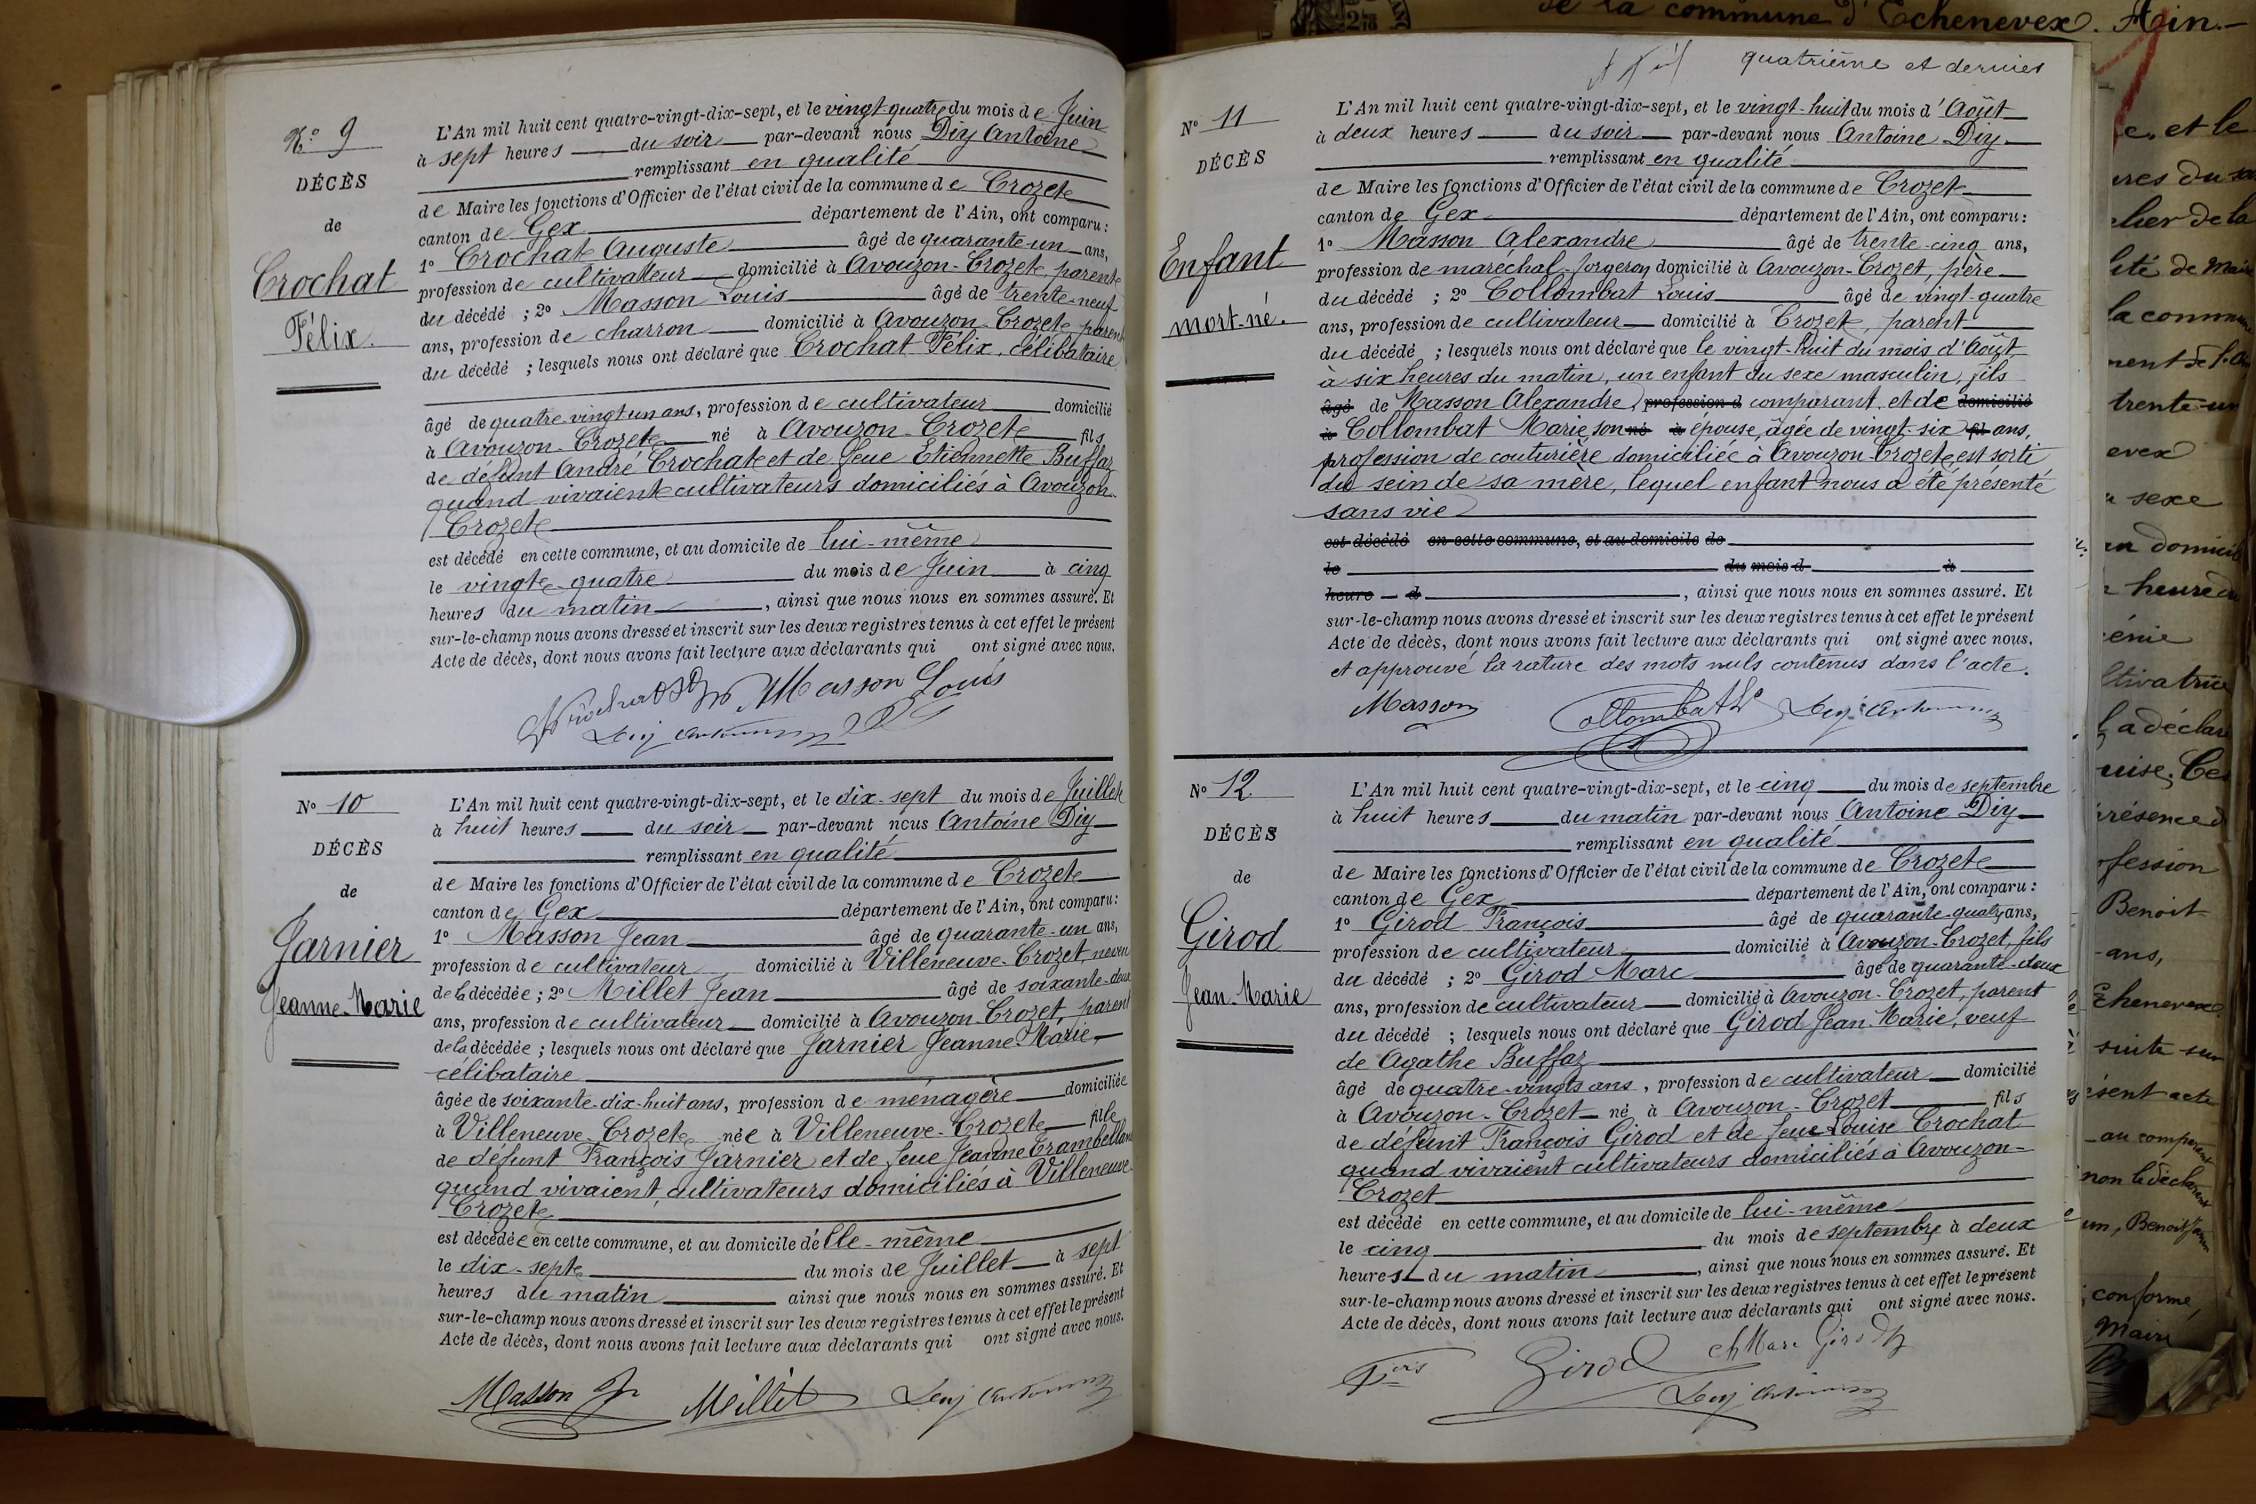 N.o 9
DÉCÈS
de
Crochat
Félix.
L'An mil huit cent quatre-vingt-dix-sept, et le vingt-quatre du mois de Juin
à sept heures du soir par-devant nous Diy Antoine
remplissant en qualité
de Maire les fonctions d'Officier de l'état civil de la commune de Crozet
canton de Gex département de l'Ain, ont comparu :
1º Crochat Auguste âgé de quarante-un ans,
profession de cultivateur domicilié à Avouzon-Crozet, parent
du décédé ; 2º Masson Louis âgé de trente-neuf
ans, profession de charron domicilié à Avouzon-Crozet, parent
du décédé ; lesquels nous ont déclaré que Crochat Félix, célibataire
âgé de quatre vingt un ans, profession de cultivateur domicilié
à Avouzon-Crozet né à Avouzon-Crozet fils
de défunt André Crochat et de feue Etiennette Buffaz
quand vivaient cultivateurs domiciliés à Avouzon-
Crozet
est décédé en cette commune, et au domicile de lui-même
le vingt-quatre du mois de Juin à cinq
heures du matin, ainsi que nous nous en sommes assuré. Et
sur-le-champ nous avons dressé et inscrit sur les deux registres tenus à cet effet le présent
Acte de décès, dont nous avons fait lecture aux déclarants qui ont signé avec nous.
Masson Louis
Diy Antoine
Nº 10
DÉCÈS
de
Jarnier
Jeanne-Marie
L'An mil huit cent quatre-vingt-dix-sept, et le dix-sept du mois de Juillet
à huit heures du soir par-devant nous Antoine Diy
remplissant en qualité
de Maire les fonctions d'Officier de l'état civil de la commune de Crozet
canton de Gex département de l'Ain, ont comparu :
1º Masson Jean âgé de quarante-un ans,
profession de cultivateur domicilié à Villeneuve-Crozet, neveu
de la décédée ; 2º Millet Jean âgé de soixante-deux
ans, profession de cultivateur domicilié à Avouzon-Crozet, parent
de la décédée ; lesquels nous ont déclaré que Jarnier Jeanne-Marie,
célibataire
âgée de soixante-dix-huit ans, profession de ménagère domiciliée
à Villeneuve-Crozet née à Villeneuve-Crozet fille
de défunt François Jarnier et de feue Jeanne
quand vivaient, cultivateurs domiciliés à Villeneuve-
Crozet
est décédée en cette commune, et au domicile d'elle-même
le dix-sept du mois de Juillet à sept
heures du matin ainsi que nous nous en sommes assuré. Et
sur-le-champ nous avons dressé et inscrit sur les deux registres tenus à cet effet le présent
Acte de décès, dont nous avons fait lecture aux déclarants qui ont signé avec nous.
Masson Jn Millet Diy Antoine
quatrième et dernier
Nº 11
DÉCÈS
Enfant
mort-né.
L'An mil huit cent quatre-vingt-dix-sept, et le vingt-huit du mois d'Août
à deux heures du soir par-devant nous Antoine Diy
remplissant en qualité
de Maire les fonctions d'Officier de l'état civil de la commune de Crozet
canton de Gex département de l'Ain, ont comparu :
1º Masson Alexandre âgé de trente-cinq ans,
profession de maréchal-forgeron domicilié à Avouzon-Crozet, père
du décédé ; 2º Collombat Louis âgé de vingt-quatre
ans, profession de cultivateur domicilié à Crozet, parent
du décédé ; lesquels nous ont déclaré que le vingt-huit du mois d'Août
à six heures du matin, un enfant du sexe masculin, fils
âgé de Masson Alexandre, profession d comparant et de domicilié
à Collombat Marie son né à épouse, agée de vingt-six fil ans,
profession de couturière domiciliée à Avouzon-Crozet est sorti
du sein de sa mère, lequel enfant nous a été présenté
sans vie
est décédé en cette commune, et au domicile de
le du mois d à
heure d , ainsi que nous nous en sommes assuré. Et
sur-le-champ nous avons dressé et inscrit sur les deux registres tenus à cet effet le présent
Acte de décès, dont nous avons fait lecture aux déclarants qui ont signé avec nous.
et approuvé la rature des mots nuls contenus dans l'acte.
Masson Collombat Ls Diy Antoine
Nº 12
DÉCÈS
de
Girod
Jean-Marie
L'An mil huit cent quatre-vingt-dix-sept, et le cinq du mois de septembre
à huit heures du matin par-devant nous Antoine Diy
remplissant en qualité
de Maire les fonctions d'Officier de l'état civil de la commune de Crozet
canton de Gex département de l'Ain, ont comparu :
1º Girod François âgé de quarante-quatre ans,
profession de cultivateur domicilié à Avouzon-Crozet, fils
du décédé ; 2º Girod Marc âgé de quarante-deux
ans, profession de cultivateur domicilié à Avouzon-Crozet, parent
du décédé ; lesquels nous ont déclaré que Girod Jean-Marie, veuf
de Agathe Buffaz
âgé de quatre-vingts ans, profession de cultivateur domicilié
à Avouzon-Crozet né à Avouzon-Crozet fils
de défunt François Girod et de feue Louise Crochat
quand vivaient cultivateurs domiciliés à Avouzon-
Crozet
est décédé en cette commune, et au domicile de lui-même
le cinq du mois de septembre à deux
heures du matin, ainsi que nous nous en sommes assuré. Et
sur-le-champ nous avons dressé et inscrit sur les deux registres tenus à cet effet le présent
Acte de décès, dont nous avons fait lecture aux déclarants qui ont signé avec nous.
Fçois Girod Marc Girod
Diy Antoine
de la commune d'Echenevex. Ain.
et le
du
de la
de Maire
la commune
trente-un
sexe
domicile
heure
la déclaration
présence
profession
Benoit
ans,
Echenevex
suite
présent acte
au comparant
non le déclarant
un, Benoit
conforme,
Maire